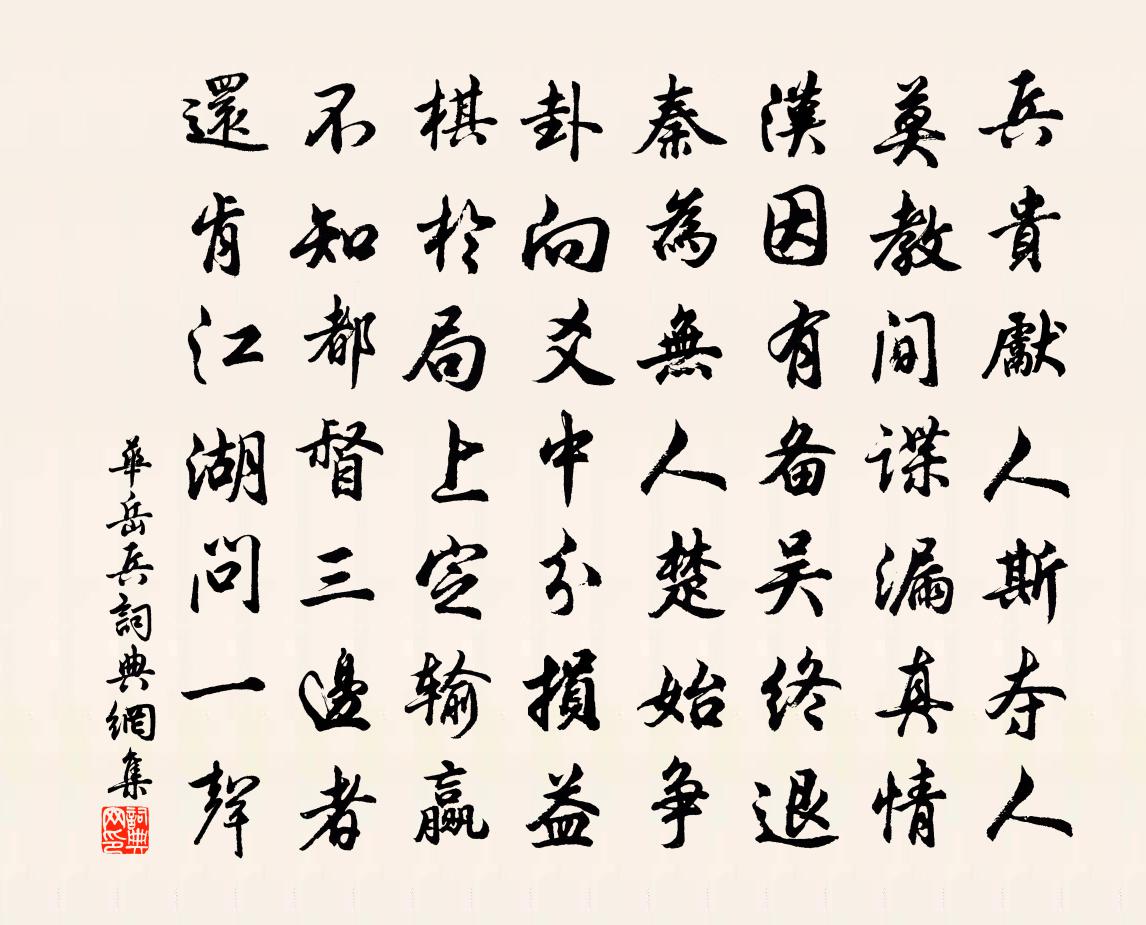 兵貴獻人斯夺人
莫教间谍漏真情
漢因有备吴终退
秦為無人楚始争
卦向爻中分損益
棋於局上定输赢
不知都督三邊者
還肯江湖问一聲
華岳兵詞典網集
詞典网印